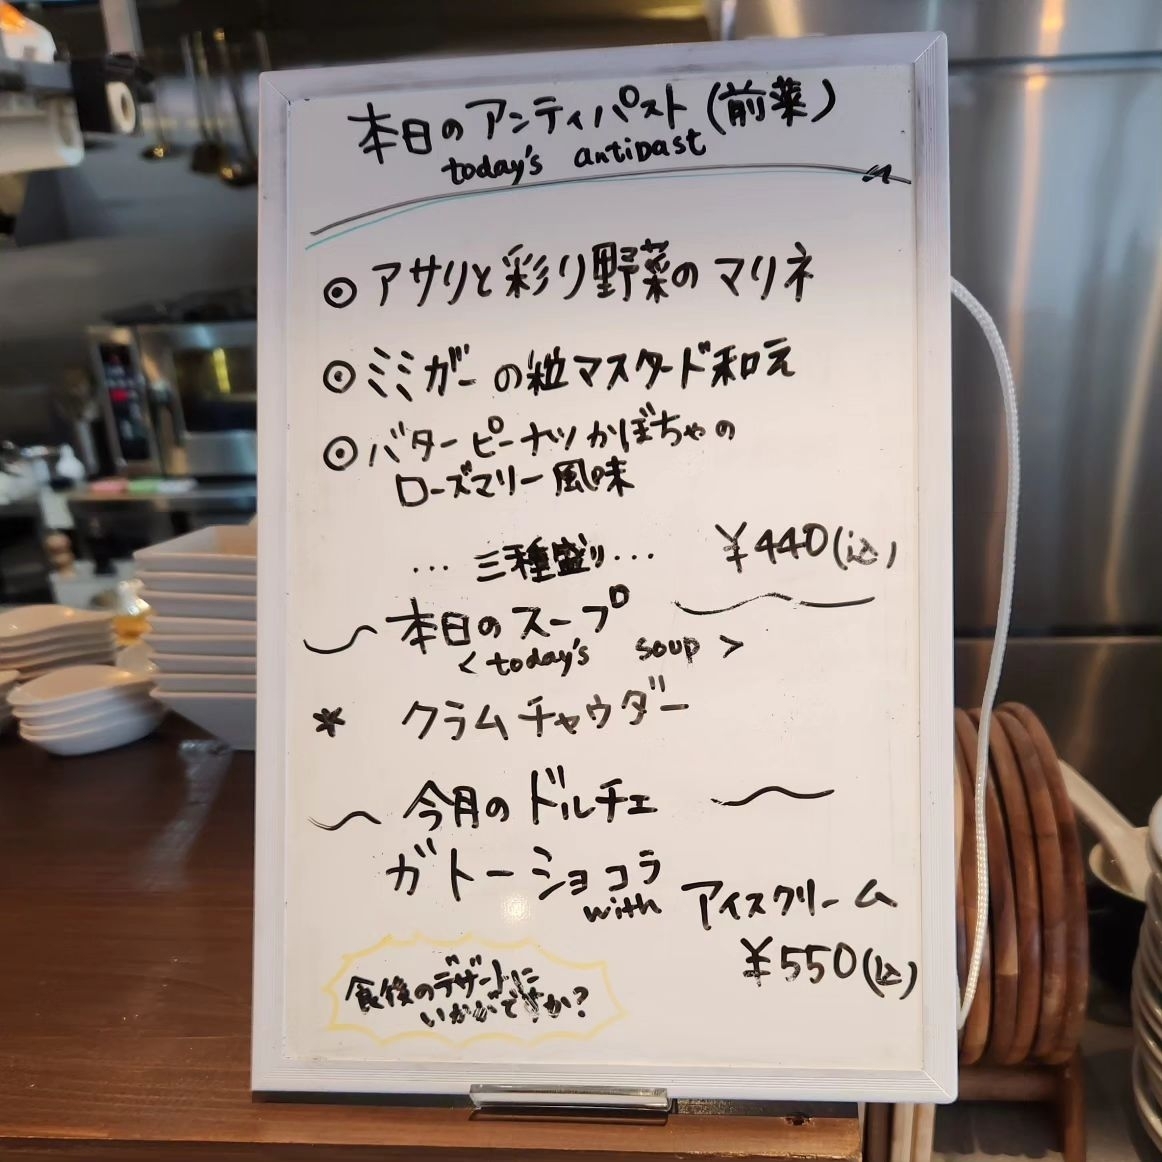 本日のアンティパスト(前菜)
today's antipast
◎アサリと彩り野菜のマリネ
◎ミミガーの粒マスタード和え
◎バターピーナツかぼちゃの
ローズマリー風味
… 三種盛り… ¥440(込)
〜本日のスープ〜
<today's soup>
* クラムチャウダー
〜今月のドルチェ〜
ガトーショコラ
with アイスクリーム
¥550(込)
食後のデザートに
いかがですか?